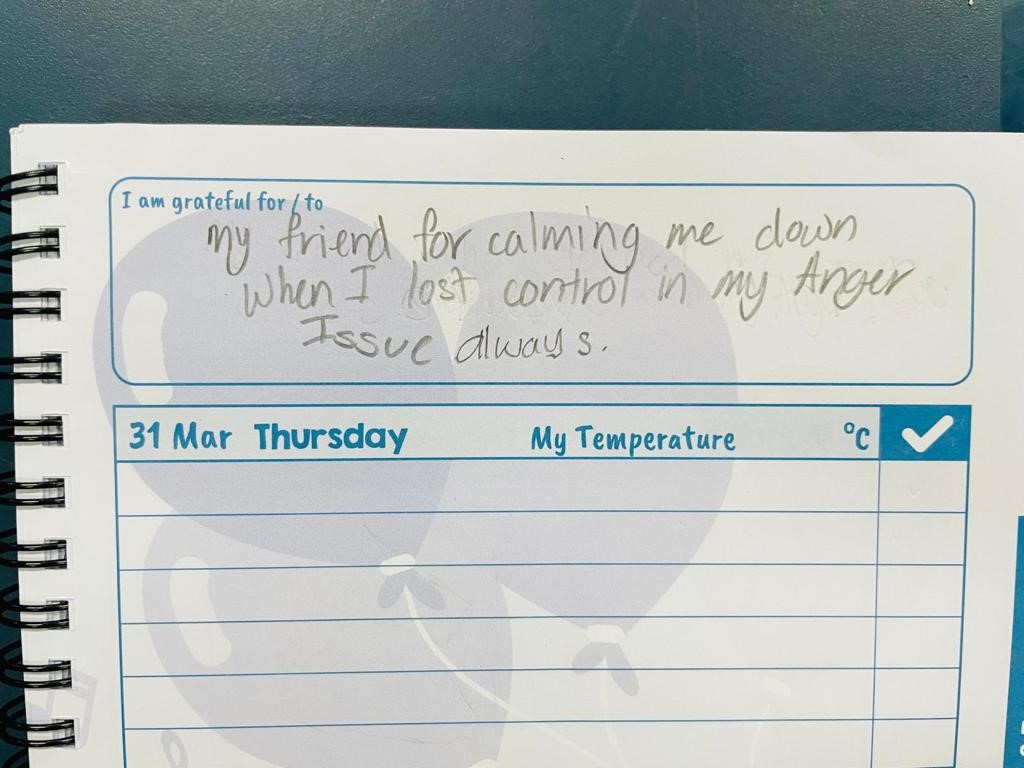 I am grateful for / to
my friend for calming me down
when I lost control in my Anger
Issue always.
31 Mar Thursday My Temperature °C